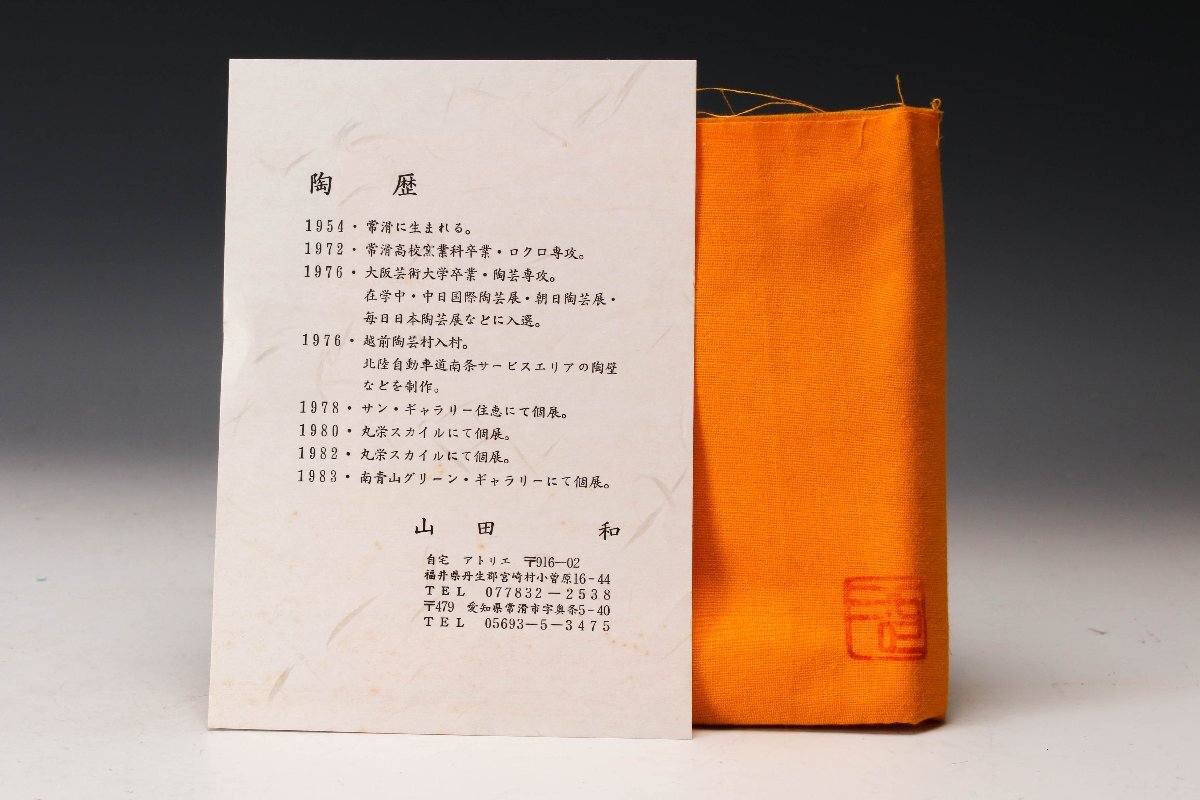 陶歴
1954・常滑に生まれる。
1972・常滑高校窯業科卒業・ロクロ専攻。
1976・大阪芸術大学卒業・陶芸専攻。
在学中・中日国際陶芸展・朝日陶芸展・
毎日日本陶芸展などに入選。
1976・越前陶芸村入村。
北陸自動車道南条サービスエリアの陶壁
などを制作。
1978・サン・ギャラリー住恵にて個展。
1980・丸栄スカイルにて個展。
1982・丸栄スカイルにて個展。
1983・南青山グリーン・ギャラリーにて個展。
山田 和
自宅 アトリエ 〒916—02
福井県丹生郡宮崎村小曽原16-44
TEL 077832—2538
〒479 愛知県常滑市字奥条5-40
TEL 05693—5—3475